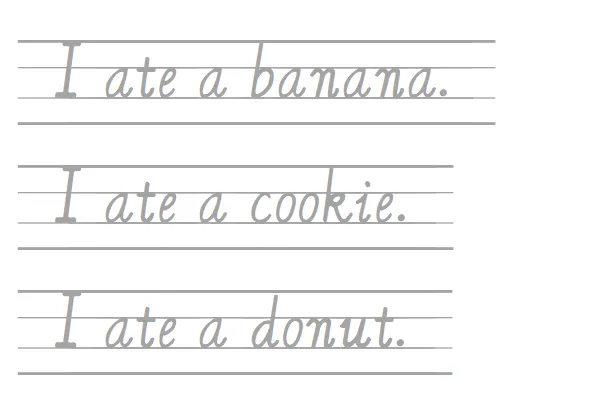 I ate a banana.
I ate a cookie.
I ate a donut.